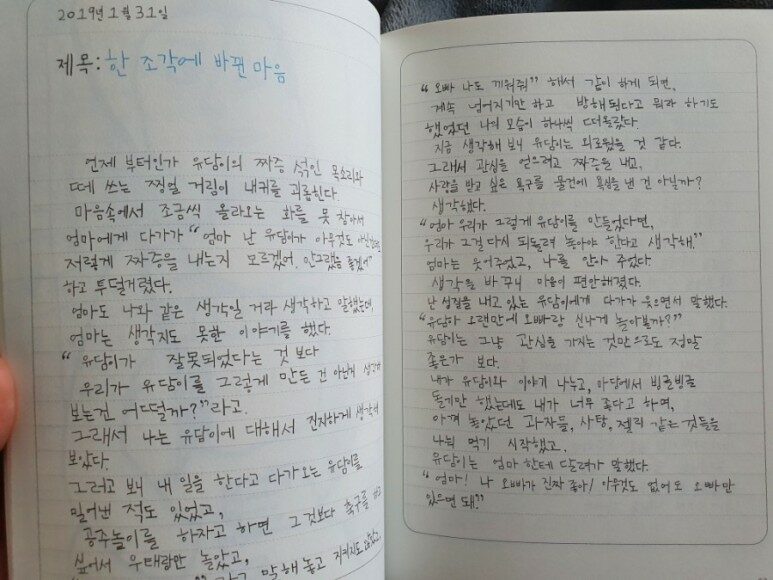 2019년 1월 31일
제목: 한 조각에 바뀐 마음
언제 부터인가 유담이의 짜증 섞인 목소리와
떼 쓰는 찡얼 거림이 내귀를 괴롭힌다.
마음속에서 조금씩 올라오는 화를 못 참아서
엄마에게 다가가 "엄마 난 유담이가 아무것도 아닌
저렇게 짜증을 내는지 모르겠어. 안그랬음 좋겠어"
하고 투덜거렸다.
엄마도 나와 같은 생각일 거라 생각하고 말했는데,
엄마는 생각지도 못한 이야기를 했다.
"유담이가 잘못되었다는 것 보다
우리가 유담이를 그렇게 만든 건 아닌지 생각해
보는건 어떨까?"라고.
그래서 나는 유담이에 대해서 진지하게 생각해
보았다.
그러고 보니 내 일을 한다고 다가오는 유담이를
밀어낸 적도 있었고,
공주놀이를 하자고 하면 그것보다 축구를 하고
싶어서 우태랑만 놀았고,
말해 놓고 지키지도 않았고,
"오빠 나도 끼워줘" 해서 같이 하게 되면,
계속 넘어지기만 하고 방해된다고 뭐라 하기도
했었던 나의 모습이 하나씩 떠올랐다.
지금 생각해 보니 유담이는 외로웠을 것 같다.
그래서 관심을 얻으려고 짜증을 내고,
사랑을 받고 싶은 욕구를 물건에 욕심을 낸 건 아닐까?
생각했다.
"엄마 우리가 그렇게 유담이를 만들었다면,
우리가 그걸 다시 되돌려 놓아야 한다고 생각해"
엄마는 웃어주었고, 나를 안아 주었다.
생각을 바꾸니 마음이 편안해졌다.
난 성질을 내고 있는 유담이에게 다가가 웃으면서 말했다.
"유담아 오랜만에 오빠랑 신나게 놀아볼까?"
유담이는 그냥 관심을 가지는 것만으로도 정말
좋은가 보다.
내가 유담이와 이야기 나누고, 마당에서 빙글빙글
돌기만 했는데도 내가 너무 좋다고 하며,
아껴 놓았던 과자들, 사탕, 젤리 같은 것들을
나눠 먹기 시작했고.
유담이는 엄마 한테 달려가 말했다.
"엄마! 나 오빠가 진짜 좋아! 아무것도 없어도 오빠만
있으면 돼."